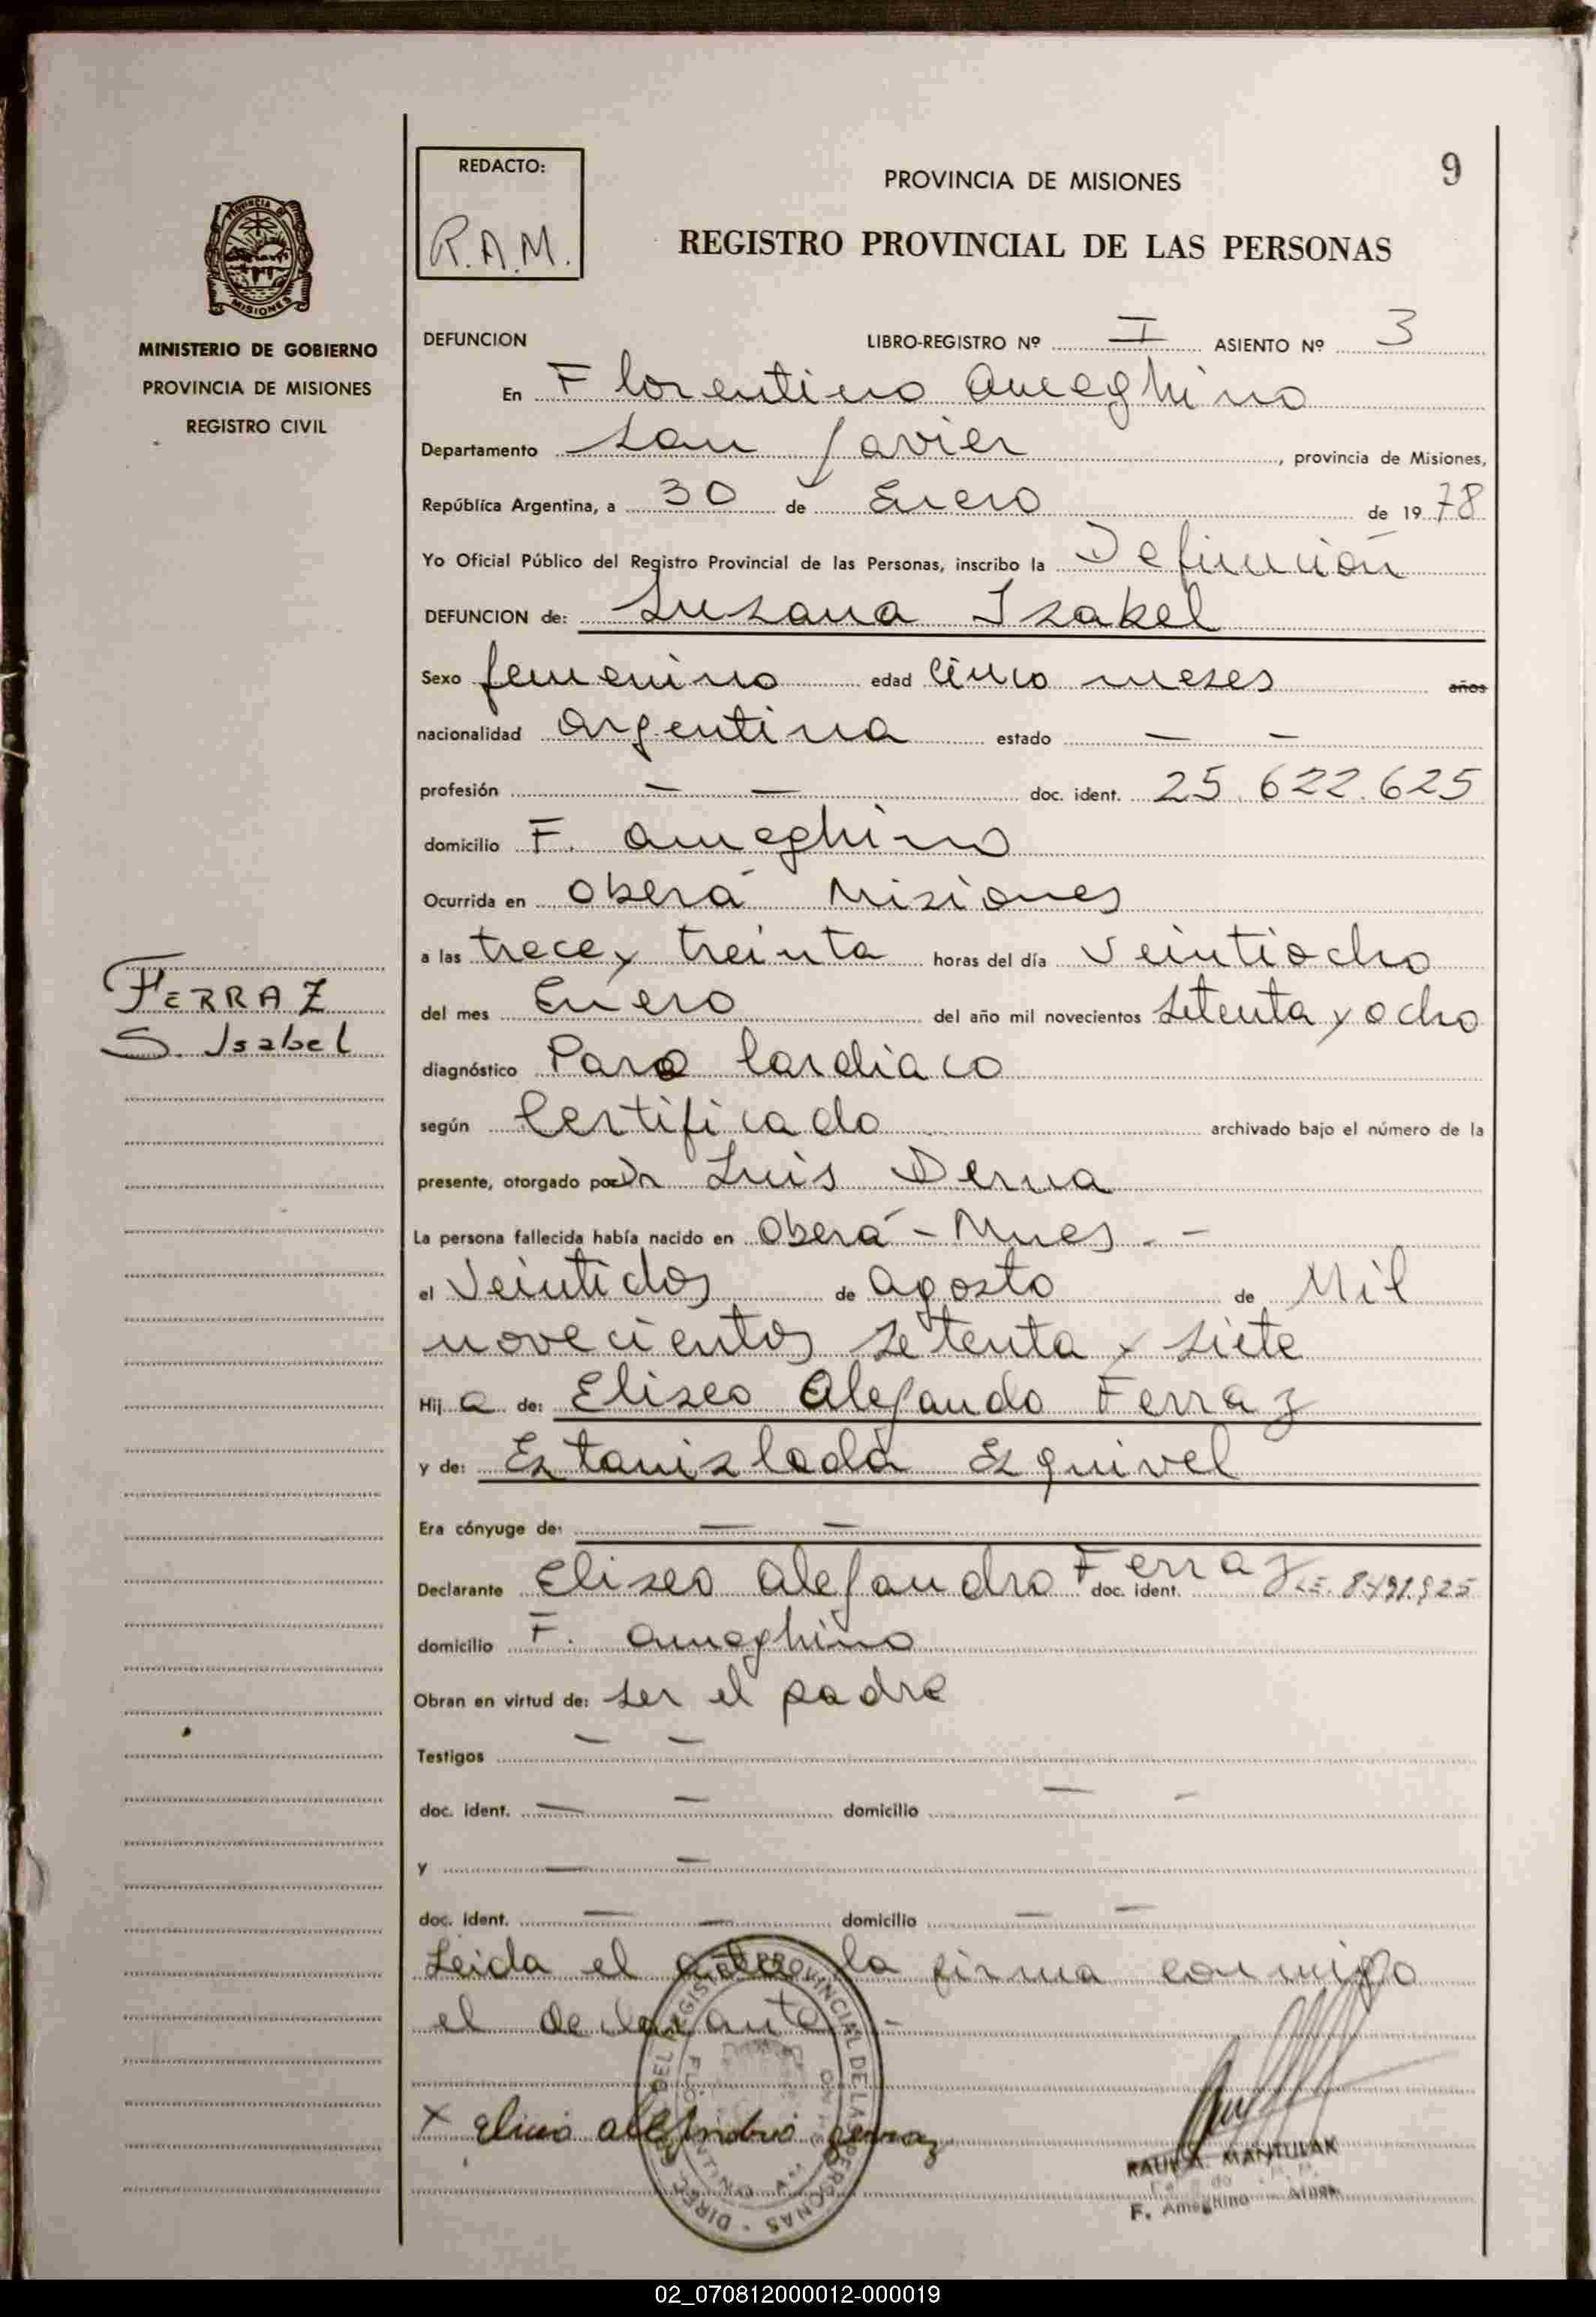 9
REDACTO:
R.A.M.
PROVINCIA DE MISIONES
REGISTRO PROVINCIAL DE LAS PERSONAS
PROVINCIA DE MISIONES
MINISTERIO DE GOBIERNO
PROVINCIA DE MISIONES
REGISTRO CIVIL
DEFUNCION LIBRO-REGISTRO Nº I ASIENTO Nº 3
En Florentino Ameghino
Departamento San Javier, provincia de Misiones,
República Argentina, a 30 de Enero de 1978
Yo Oficial Público del Registro Provincial de las Personas, inscribo la Defunción
DEFUNCION de: Susana Isabel
Sexo femenino edad Cinco meses años
nacionalidad Argentina estado — —
profesión — — doc. ident. 25.622.625
domicilio F. Ameghino
Ocurrida en Oberá Misiones
a las trece y treinta horas del día Veintiocho
FERRAZ
S. Isabel
del mes Enero del año mil novecientos Setenta y ocho
diagnóstico Paro Cardiaco
según Certificado archivado bajo el número de la
presente, otorgado por Dr Luis Derna
La persona fallecida había nacido en Oberá - Mnes. -
el Veintidos de Agosto de Mil
novecientos setenta y siete
Hija de: Eliseo Alejando Ferraz
y de: Estanislada Esquivel
Era cónyuge de: — —
Declarante Eliseo Alejandro Ferraz doc. ident. L.E.
domicilio F. Ameghino
Obran en virtud de: ser el padre
Testigos — —
doc. ident. — — domicilio — —
y — —
doc. ident. — — domicilio — —
Leida el acta la firma conmigo
el declarante -
X Eliceo alejandro ferraz
DIREC. DEL REGISTRO PROVINCIAL DE LAS PERSONAS
RAUL A. MANTULAK
F. Ameghino
02_070812000012-000019